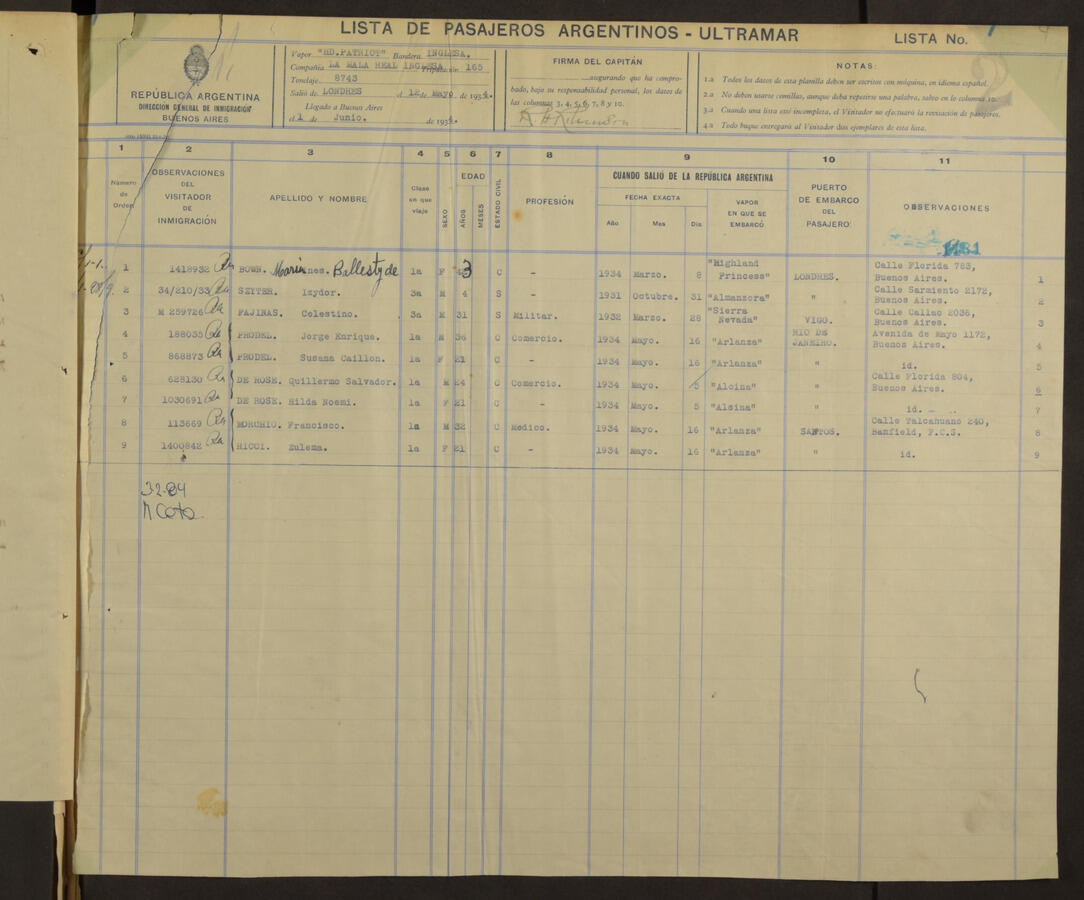 LISTA DE PASAJEROS ARGENTINOS - ULTRAMAR
LISTA No.
REPÚBLICA ARGENTINA
DIRECCION GENERAL DE INMIGRACION
BUENOS AIRES
Vapor "HD.PATRIOT" Bandera INGLESA.
Compañía LA MALA REAL INGLESA Tripulación 165
Tonelaje 8743
Salió de LONDRES el 12 de Mayo de 1934.
Llegado a Buenos Aires
el 1 de Junio. de 1934.
FIRMA DEL CAPITÁN
asegurando que ha compro-
bado, bajo su responsabilidad personal, los datos de
las columnas 3, 4, 5, 6, 7, 8 y 10.
NOTAS:
1.a Todos los datos de esta planilla deben ser escritos con máquina, en idioma español.
2.a No deben usarse comillas, aunque deba repetirse una palabra, salvo en la columna 10.
3.a Cuando una lista esté incompleta, el Visitador no efectuará la revisación de pasajeros.
4.a Todo buque entregará al Visitador dos ejemplares de esta lista.
1 2 3 4 5 6 7 8 9 10 11
Número de Orden
OBSERVACIONES DEL VISITADOR DE INMIGRACIÓN
APELLIDO Y NOMBRE
Clase en que viaje
SEXO
EDAD
AÑOS
MESES
ESTADO CIVIL
PROFESIÓN
CUANDO SALIÓ DE LA REPÚBLICA ARGENTINA
FECHA EXACTA
Año Mes Día
VAPOR EN QUE SE EMBARCÓ
PUERTO DE EMBARCO DEL PASAJERO
OBSERVACIONES
1181
1 1418932 BOWN. Maria Ines. Ballesty de 1a F 43 C - 1934 Marzo. 8 "Highland Princess" LONDRES. Calle Florida 783, Buenos Aires. 1
2 34/210/33 SZTTER. Izydor. 3a M 4 S - 1931 Octubre. 31 "Almanzora" " Calle Sarmiento 2172, Buenos Aires. 2
3 M 259726 FAJINAS. Celestino. 3a M 31 S Militar. 1932 Marzo. 28 "Sierra Nevada" VIGO. Calle Callao 2036, Buenos Aires. 3
4 188035 PRODEL. Jorge Enrique. 1a M 36 C Comercio. 1934 Mayo. 16 "Arlanza" RIO DE JANEIRO. Avenida de Mayo 1172, Buenos Aires. 4
5 868873 PRODEL. Susana Caillon. 1a F 21 C - 1934 Mayo. 16 "Arlanza" " id. 5
6 628130 DE ROSE. Guillermo Salvador. 1a M 24 C Comercio. 1934 Mayo. 5 "Alsina" " Calle Florida 804, Buenos Aires. 6
7 1030691 DE ROSE. Hilda Noemi. 1a F 21 C - 1934 Mayo. 5 "Alsina" " id. 7
8 113669 MORCHIO. Francisco. 1a M 32 C Medico. 1934 Mayo. 16 "Arlanza" SANTOS. Calle Talcahuano 240, Banfield, F.C.S. 8
9 1400842 RICCI. Zulema. 1a F 21 C - 1934 Mayo. 16 "Arlanza" " id. 9